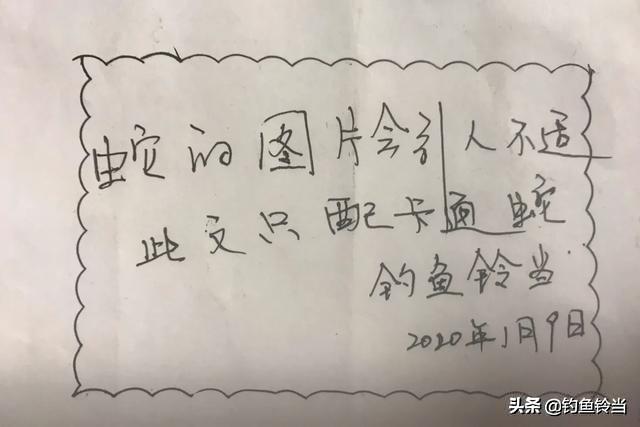 蛇的图片会引人不适
此文只配卡通蛇
钓鱼铃当
2020年1月9日
头条 @钓鱼铃当